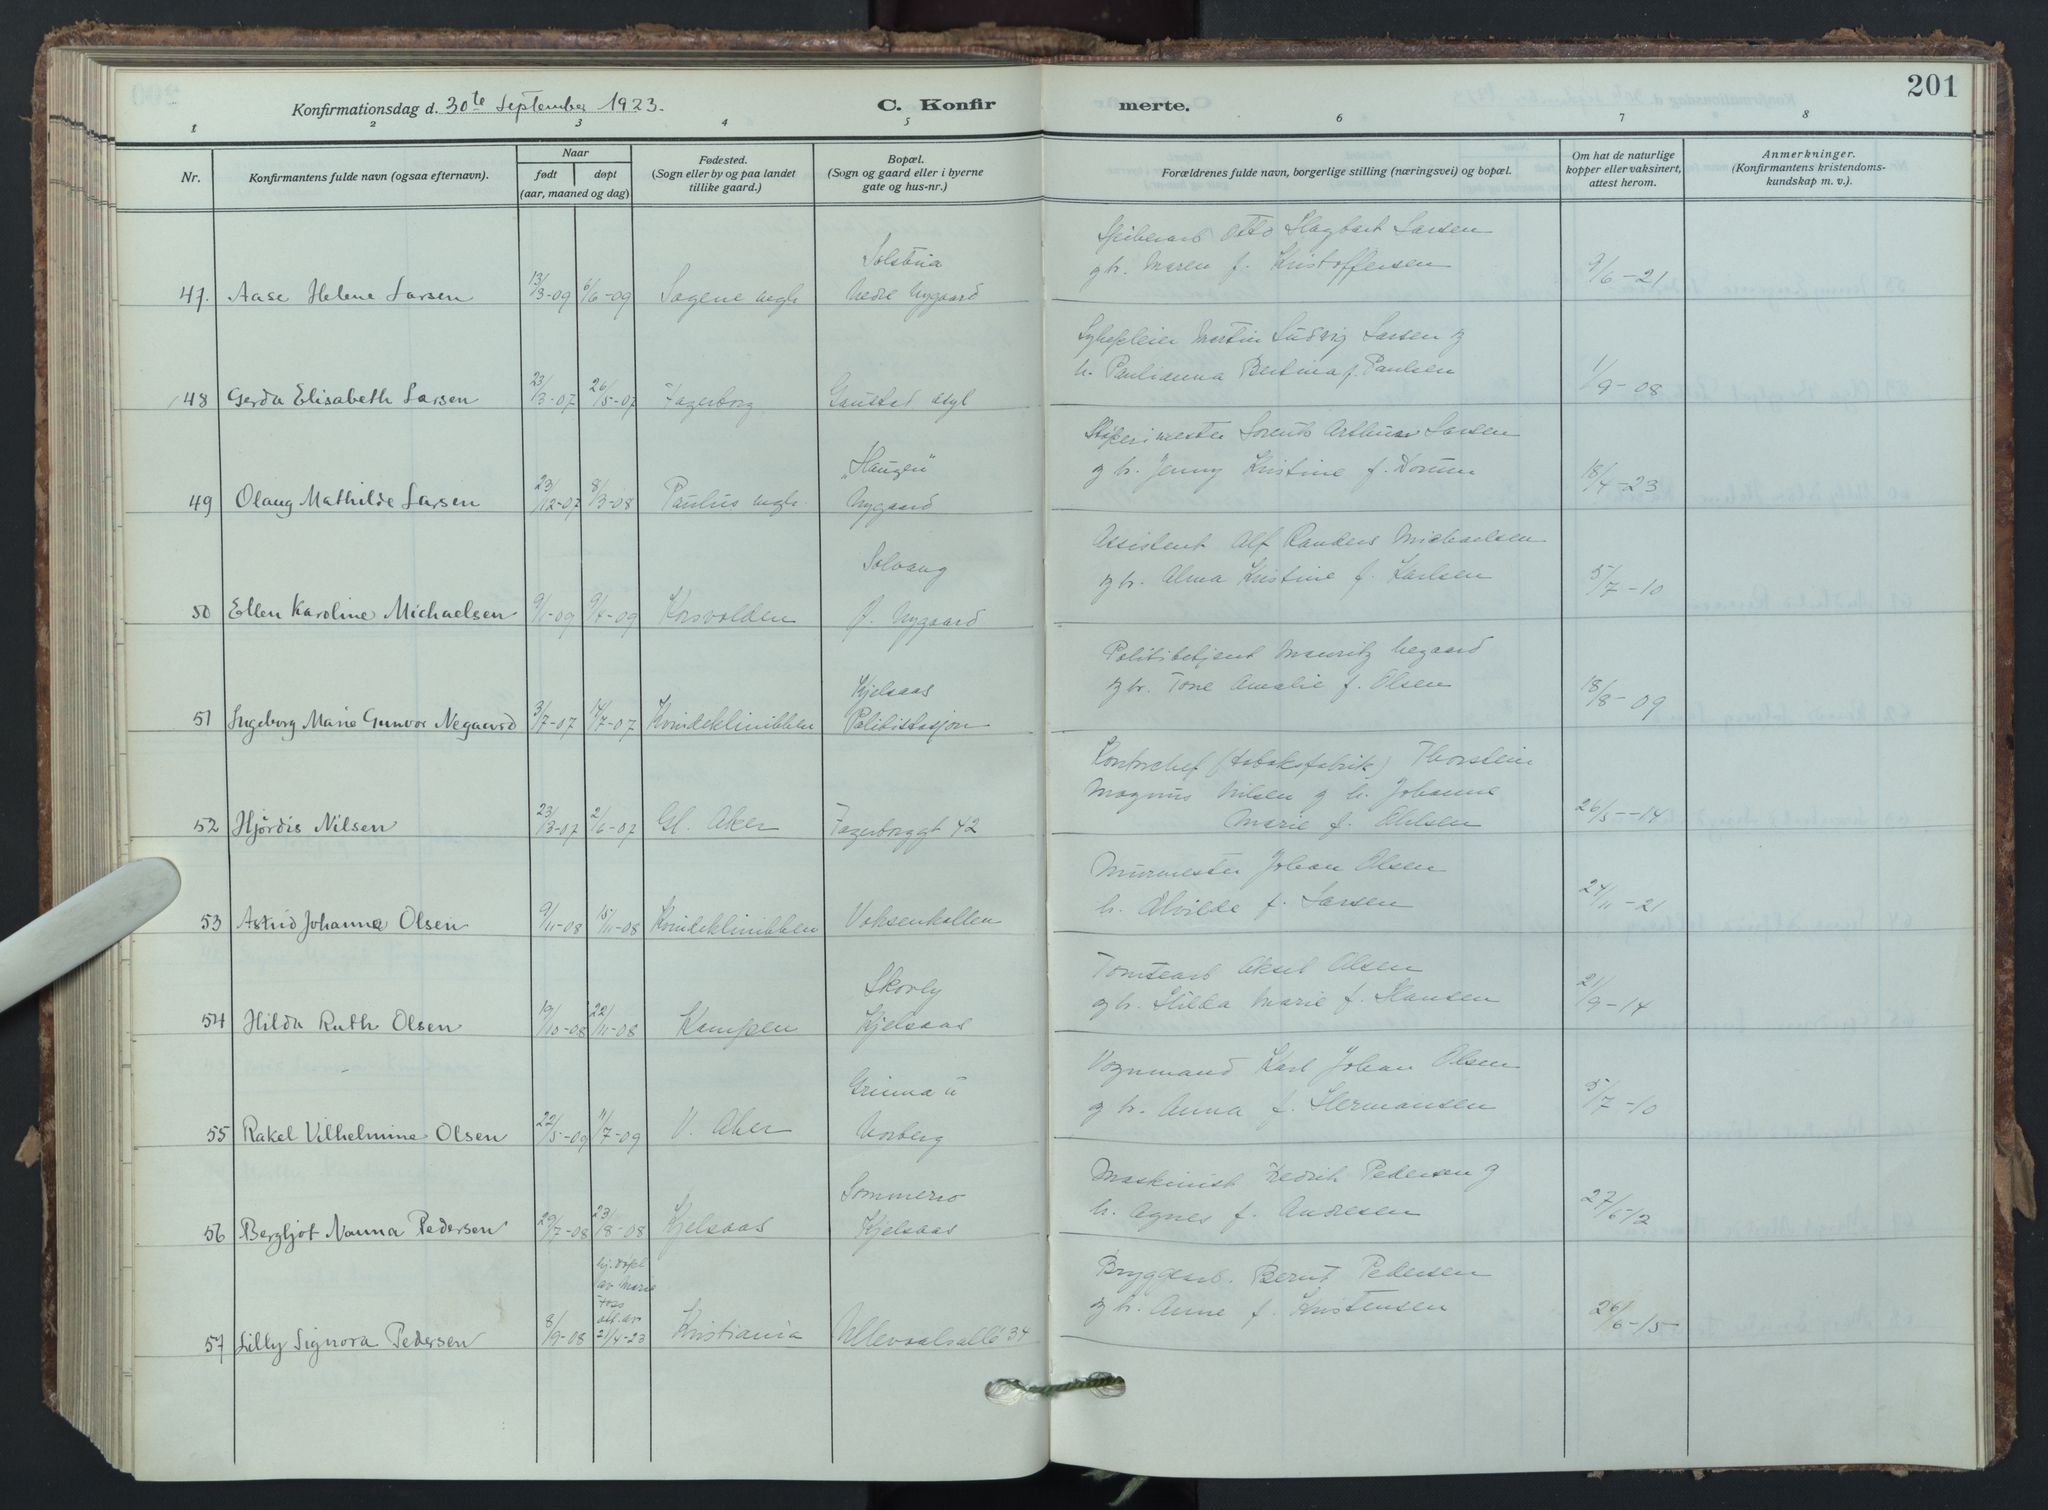 201
Konfirmationsdag d. 30te September 1923.
C. Konfirmerte.
1 2 3 4 5 6 7 8
Nr.
Konfirmantens fulde navn (ogsaa efternavn).
Naar
født
døpt
(aar, maaned og dag)
Fødested.
(Sogn eller by og paa landet
tillike gaard.)
Bopæl.
(Sogn og gaard eller i byerne
gate og hus-nr.)
Forældrenes fulde navn, borgerlige stilling (næringsvei) og bopæl.
Om hat de naturlige
kopper eller vaksinert,
attest herom.
Anmerkninger.
(Konfirmantens kristendoms-
kundskap m. v.).
Otto Hagbart Larsen
Solstua
g h. Maren f. Kristoffersen
47. Aase Helene Larsen 13/3-09 6/6-09 Sagene megh. Nedre Nygaard 9/6-21
Sykepleier Martin Ludvig Larsen g
h. Paulianna Bertina f. Paulsen
48 Gerda Elisabeth Larsen 23/3-07 26/5-07 Fagerborg Gaustad Asyl 1/9-08
Støperimester Lorents Arthur Larsen
"Haugen"
g h. Jenny Kristine f. Norum
49 Olaug Mathilde Larsen 23/12-07 8/3-08 Paulus megh. Nygaard 18/4-23
Assistent Alf Randers Michaelsen
Solvang
g h. Alma Kristine f. Karlsen
50 Ellen Karoline Michaelsen 9/1-09 Korsvolden Ø. Nygaard 5/7-10
Politibetjent Mauritz Negaard
Kjelsaas
g h. Tone Amalie f. Olsen
51 Ingeborg Marie Gunvor Negaard 3/7-07 14/7-07 Kvindeklinikken Politistasjon 18/8-09
Kontorchef (tobaksfabrik) Thorstein
Magnus Nilsen g h. Johanne
Marie f. Ohlsen
52 Hjørdis Nilsen 23/3-07 2/6-07 Gl. Aker Fagerborggt 42 26/5-14
Murmester Johan Olsen
h. Alvilde f. Larsen
53 Astrid Johanne Olsen 9/11-08 15/11-08 Kvindeklinikken Voksenkollen 24/11-21
Tomtearb Aksel Olsen
Skovly
g h. Hilda Marie f. Hansen
54 Hilda Ruth Olsen 19/10-08 22/11-08 Kampen Kjelsaas 21/9-14
Vognmand Karl Johan Olsen
Grinna u
g h. Anna f. Hermansen
55 Rakel Vilhelmine Olsen 22/5-09 11/7-09 V. Aker Norberg 5/7-10
Maskinist Fredrik Pedersen g
Sommerro
h. Agnes f. Andresen
56 Bergljot Nanna Pedersen 29/7-08 23/8-08 Kjelsaas Kjelsaas 27/6-12
Bryggearb. Bernt Pedersen
hj. døpt
av Marie
Foss
att. av
g h. Anne f. Kristensen
57 Lilly Signora Pedersen 8/9-08 21/4-23 Kristiania Ullevaalsalle 34 26/6-15